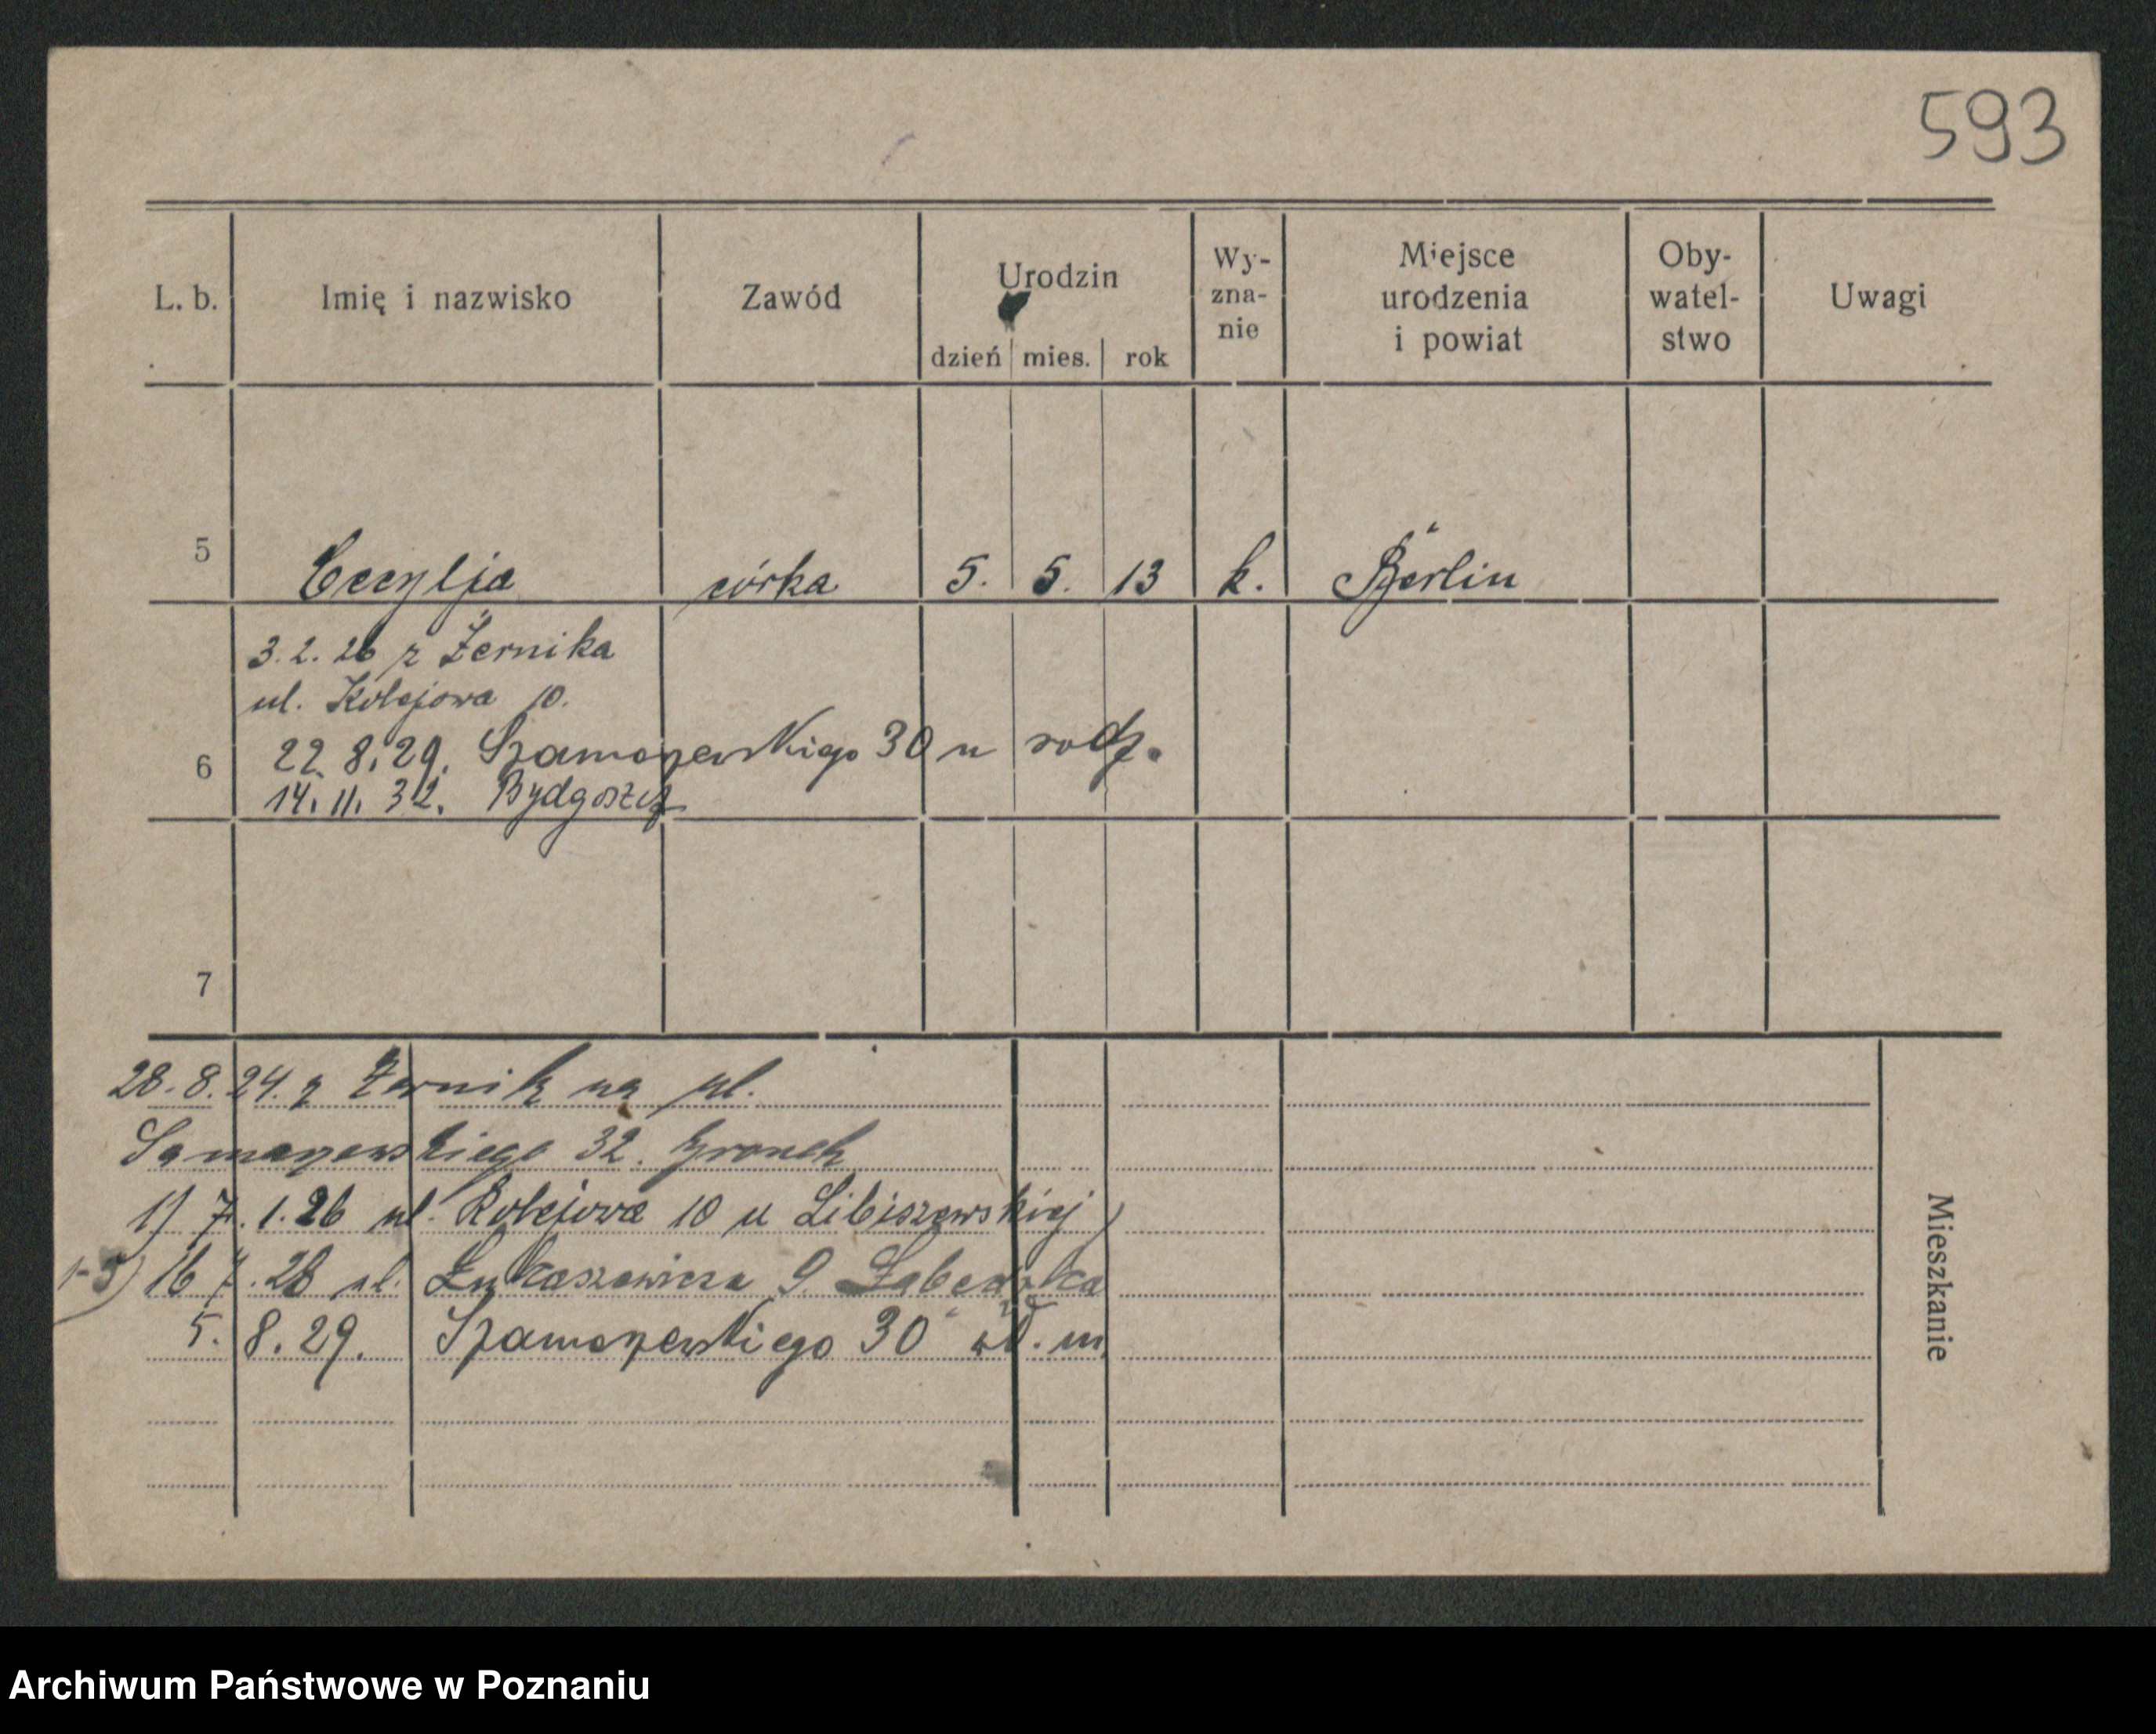 593
L. b. Imię i nazwisko Zawód Urodzin dzień mies. rok Wy-zna-nie Miejsce urodzenia i powiat Oby-watel-stwo Uwagi
5 Cecylja córka 5. 5. 13 k. Berlin
3. 2. 26 z Żernika
ul. Kolejowa 10.
6 22. 8. 29. Szamarzewskiego 30 u rodz.
14. 11. 32. Bydgoszcz
7
28. 8. 24. z Żernik na ul.
Samarzewskiego 32.
1) 7. 1. 26 ul. Kolejowa 10 u Libiszewskiej
1-5) 16 7. 28 ul. Łukaszewicza 9.
5. 8. 29. Szamarzewskiego 30 wł. m
Mieszkanie
Archiwum Państwowe w Poznaniu